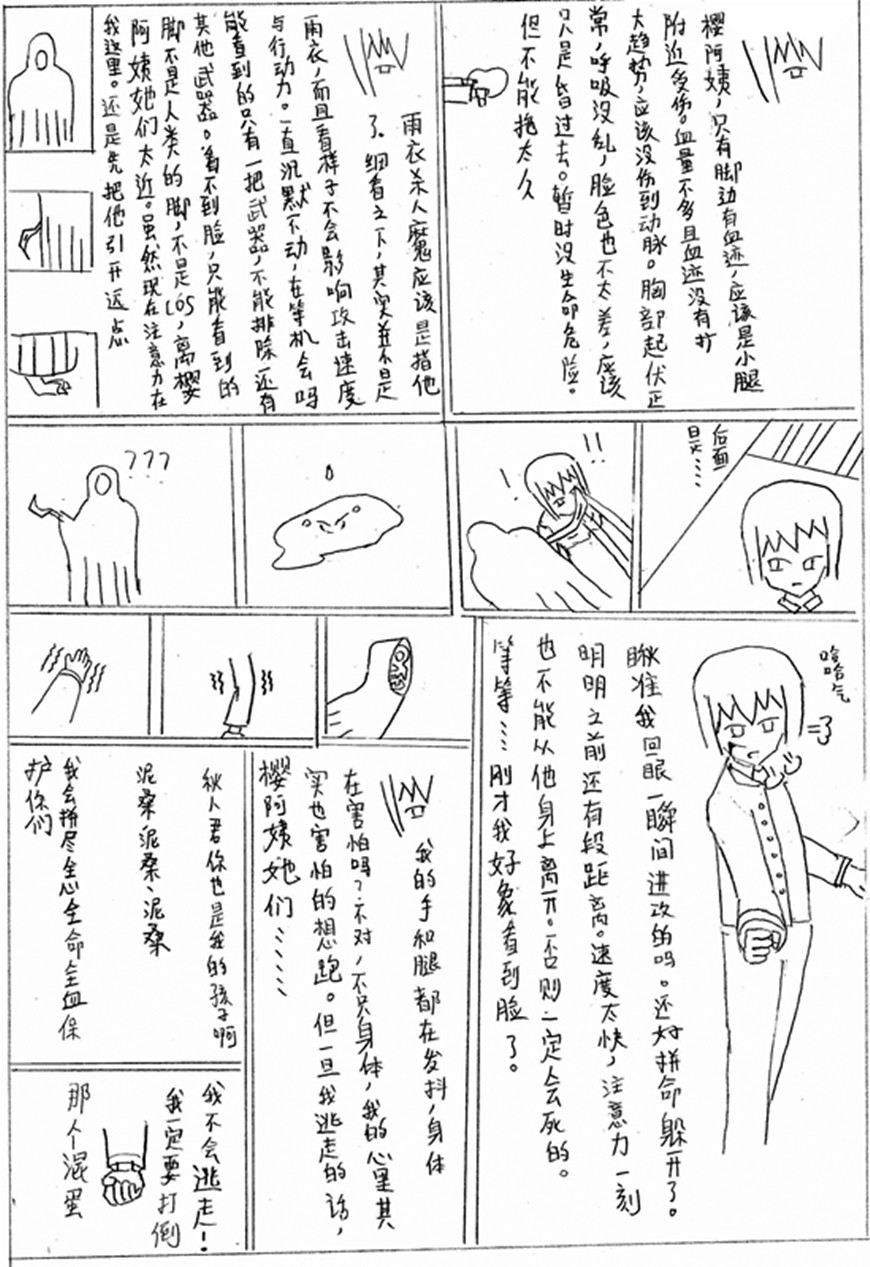 樱阿姨，只有脚边有血迹，应该是小腿
附近受伤。血量不多且血迹没有扩
大趋势，应该没伤到动脉。胸部起伏正
常，呼吸没乱，脸色也不太差，应该
只是昏过去。暂时没生命危险。
但不能拖太久
雨衣杀人魔应该是指他
了。细看之下，其实并不是
雨衣，而且看样子不会影响攻击速度
与行动力。一直沉默不动，在等机会吗
能看到的只有一把武器，不能排除还有
其他武器。看不到脸，只能看到的
脚不是人类的脚，不是COS，离樱
阿姨她们太近。虽然现在注意力在
我这里。还是先把他引开远点
后面
是……
!!
!
???
哈哈气
瞅准我回眼一瞬间进攻的吗。还好拼命躲开了。
明明之前还有段距离。速度太快，注意力一刻
也不能从他身上离开。否则一定会死的。
等等……刚才我好象看到脸了。
我的手和腿都在发抖，身体
在害怕吗？不对，不只身体，我的心里其
实也害怕的想跑。但一旦我逃走的话，
樱阿姨她们……
秋人君你也是我的孩子啊
泥桑、泥桑、泥桑
我会拼尽全心全命全血保
护你们
我不会逃走！
我一定要打倒
那个混蛋